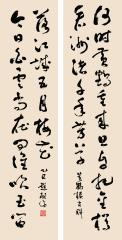 何时黄鹤重来且自把金樽
看洲渚千年芳草
今日白云尚在问谁吹玉笛
落江城五月梅花